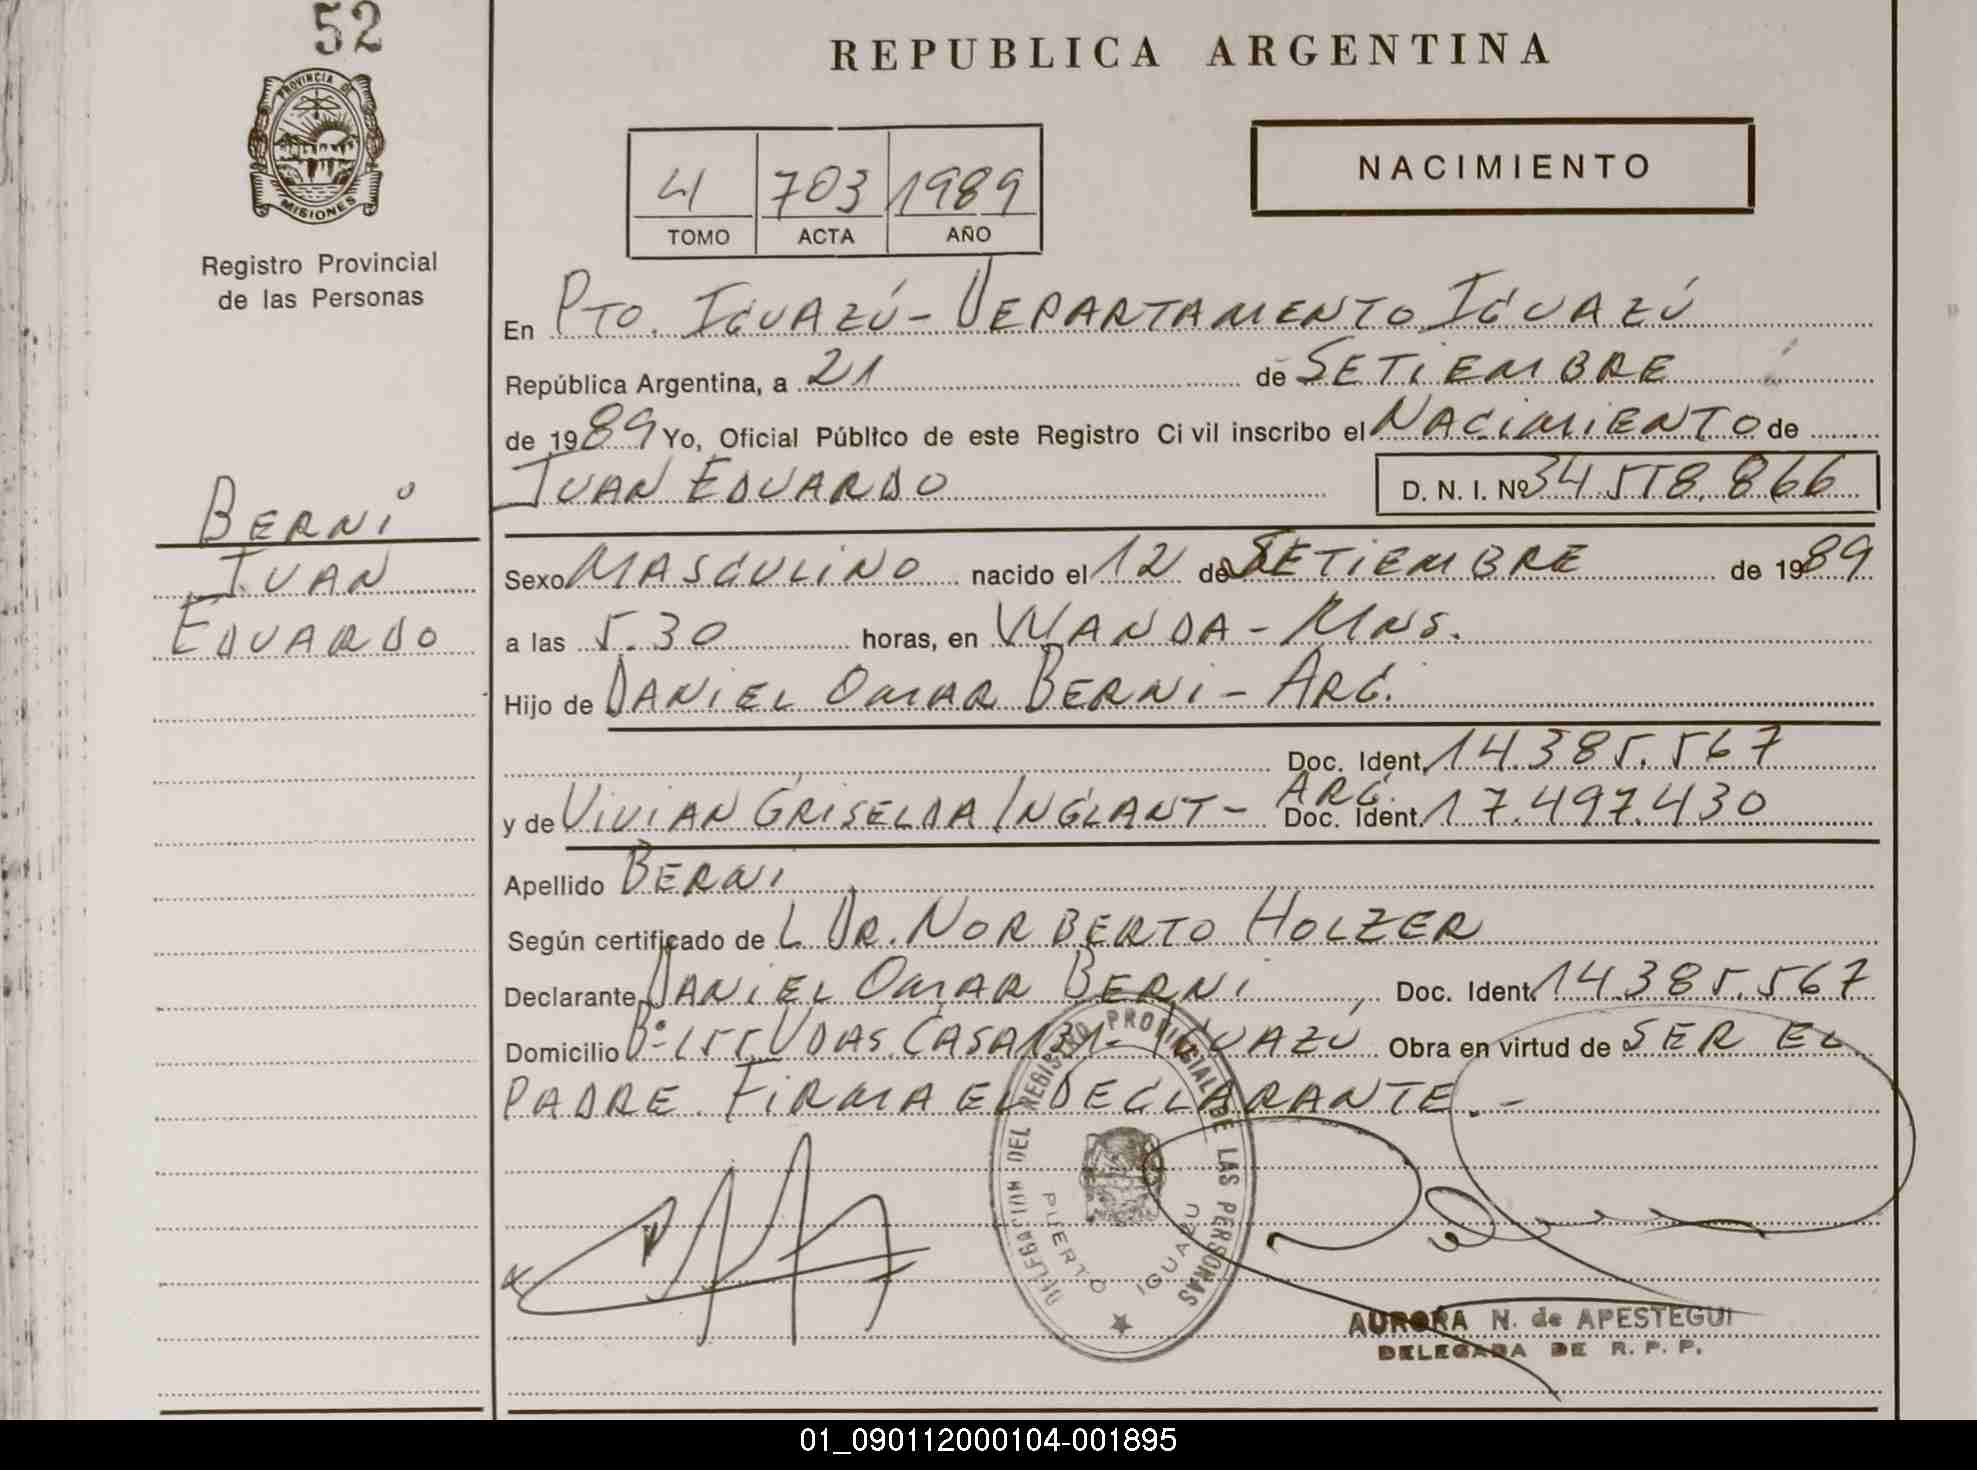 52
PROVINCIA DE
MISIONES
Registro Provincial
de las Personas
REPUBLICA ARGENTINA
NACIMIENTO
4 703 1989
TOMO ACTA AÑO
En PTO. IGUAZÚ - DEPARTAMENTO IGUAZÚ
República Argentina, a 21 de SETIEMBRE
de 1989 Yo, Oficial Público de este Registro Civil inscribo el NACIMIENTO de
JUAN EDUARDO D. N. I. Nº 34.558.866
BERNI
JUAN
EDUARDO
Sexo MASCULINO nacido el 12 de SETIEMBRE de 1989
a las 5.30 horas, en WANDA - MNS.
Hijo de DANIEL OMAR BERNI - ARG.
Doc. Ident. 14.385.567
y de VIVIAN GRISELDA INGLANT - ARG. Doc. Ident. 17.497.430
Apellido BERNI
Según certificado de L DR. NORBERTO HOLZER
Declarante DANIEL OMAR BERNI, Doc. Ident. 14.385.567
Domicilio Bº 155 VDAS. CASA 131 - IGUAZÚ Obra en virtud de SER EL
PADRE. FIRMA EL DECLARANTE. -
DELEGACION DEL REGISTRO PROVINCIAL DE LAS PERSONAS
PUERTO IGUAZU
AURORA N. de APESTEGUI
DELEGADA DE R. P. P.
01_090112000104-001895